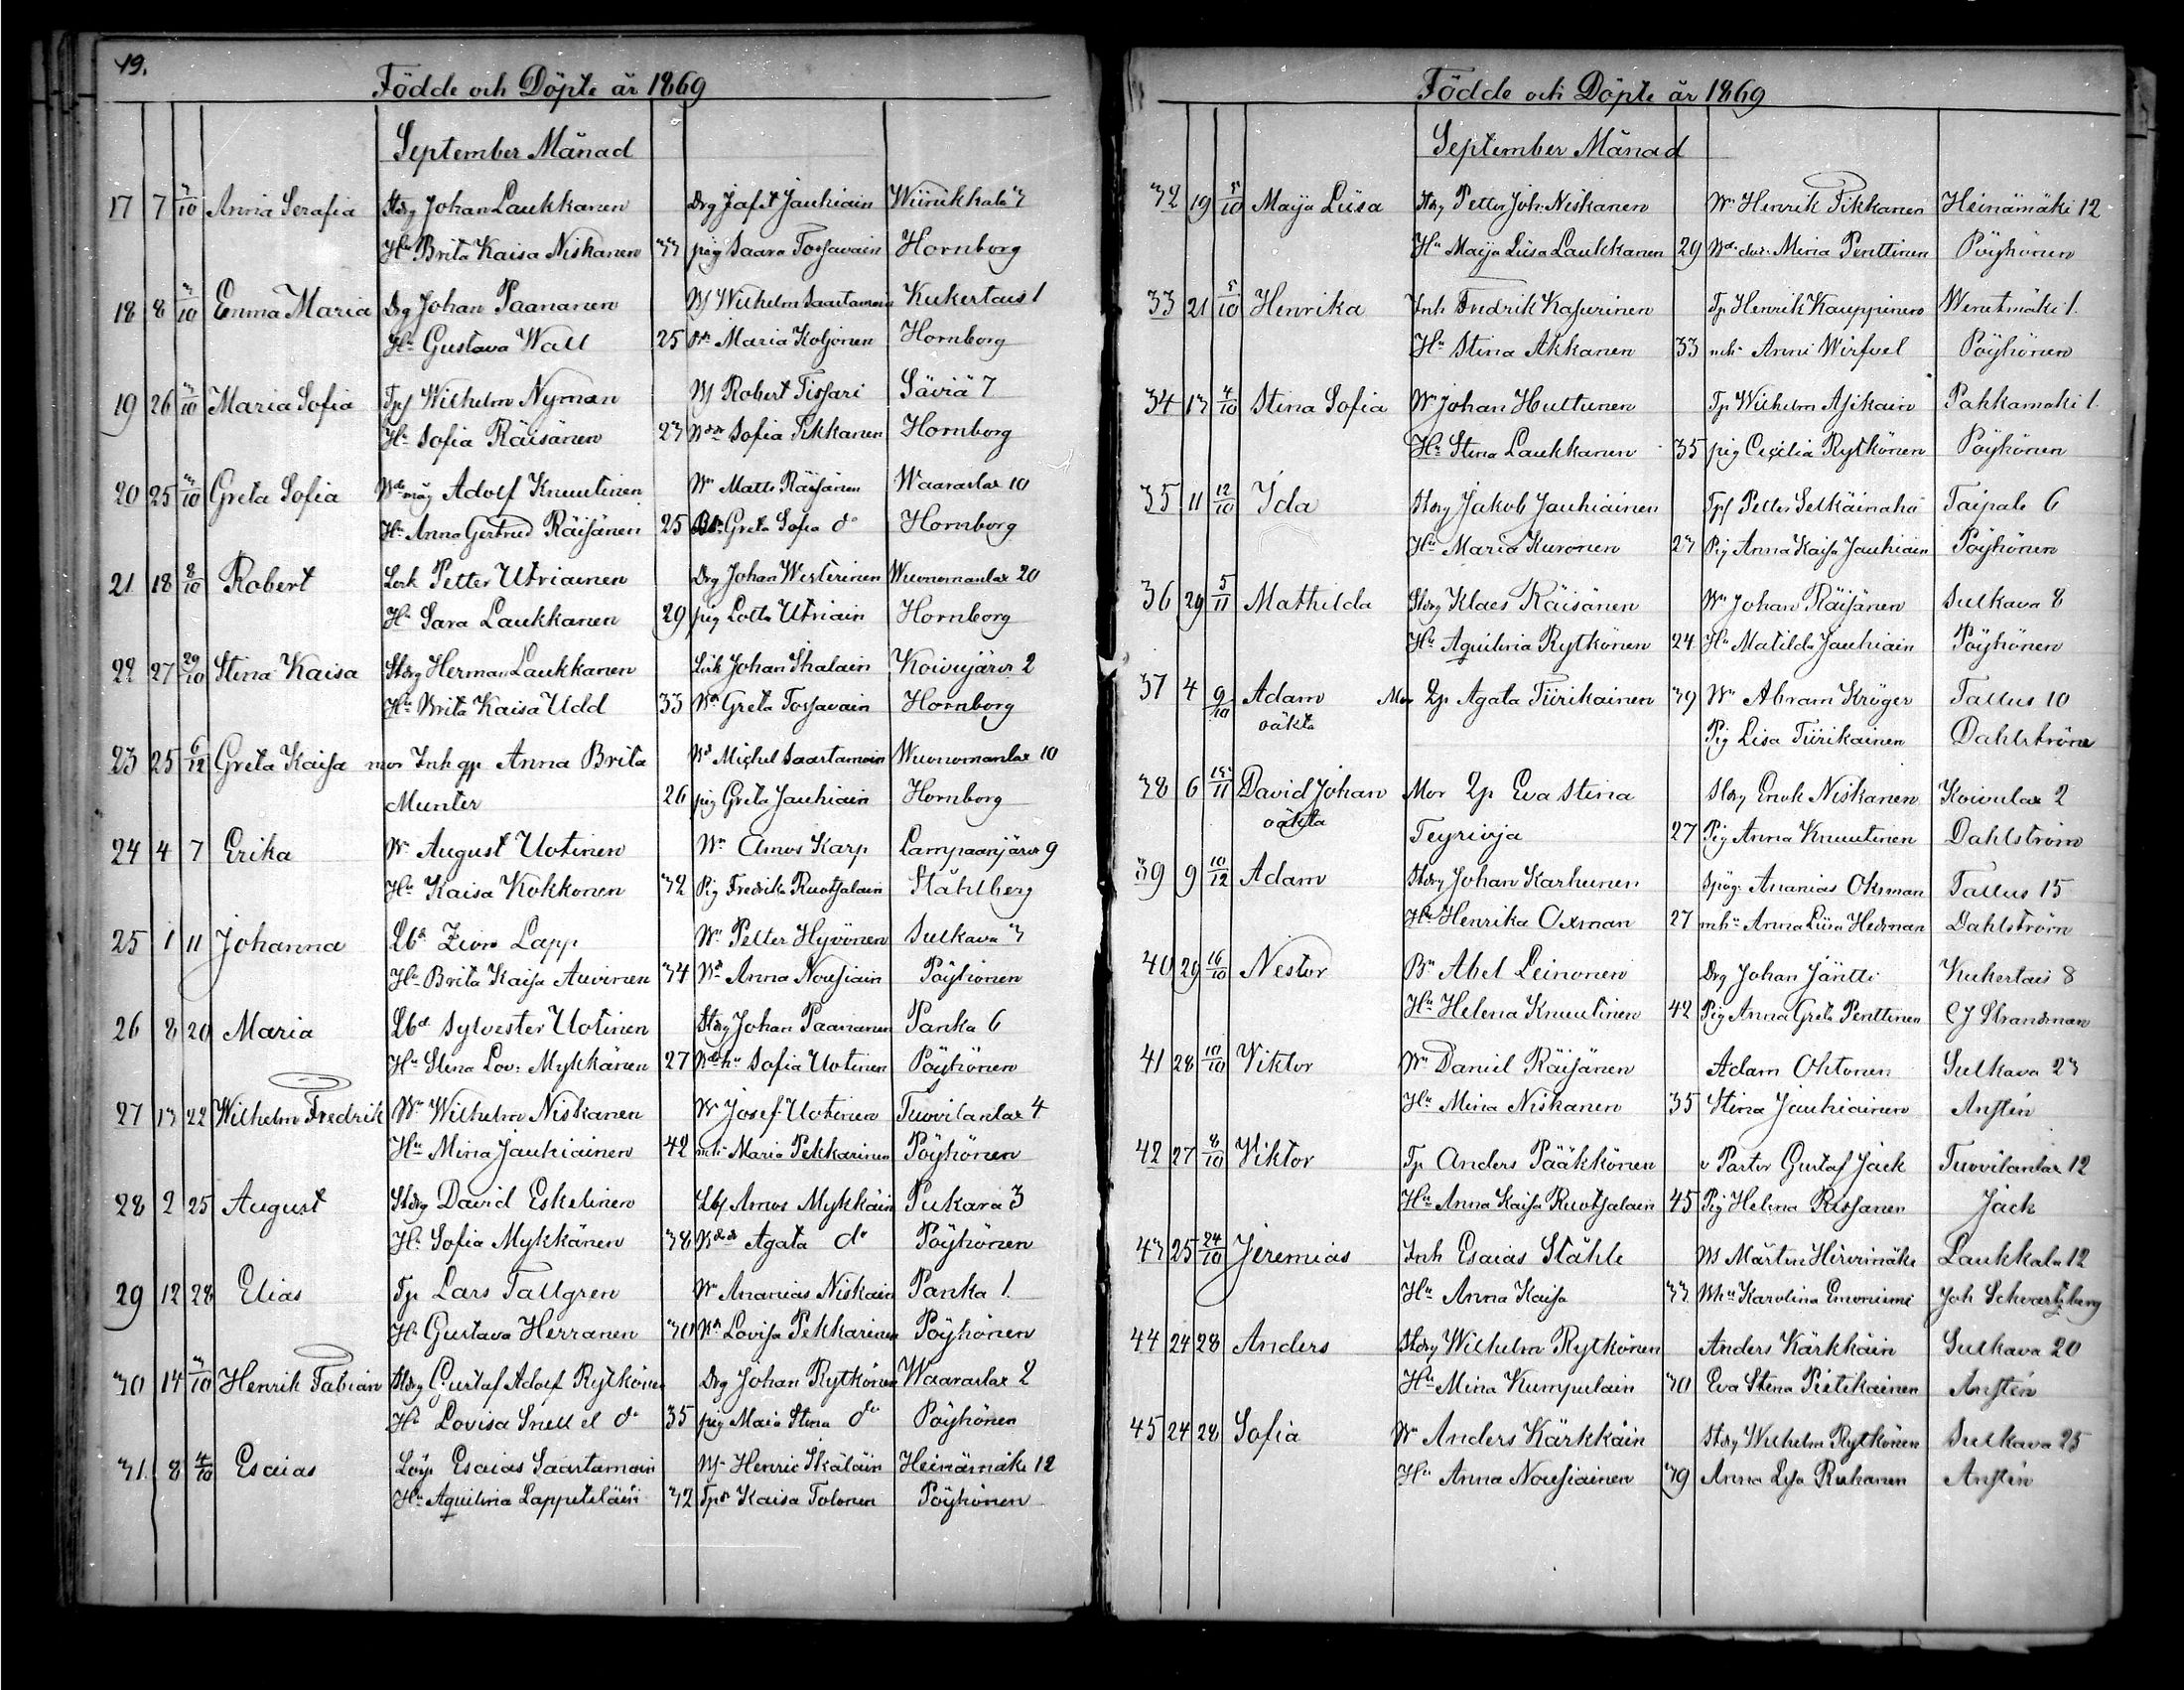 19.
Födde och Döpte år 1869
September Månad
17 7 3/10 Anna Serafia Stdrg Johan Laukkanen Drg Jafet Jauhiain Wiinikkala 3
Hu Brita Kaisa Niskanen 33 pig Saara Tossavain Hornborg
18 8 3/10 Emma Maria Drg Johan Paananen Wilhelm Saartamoin Kukertais 1
Hu Gustava Wall 25 Maria Koljonen Hornborg
19 26 3/10 Maria Sofia Tpf Wilhelm Nyman Robert Tissari Säviä 7
Hu Sofia Räisänen 23 Sofia Pikkanen Hornborg
20 25 3/10 Greta Sofia Adolf Knuutinen Wn Matts Räisänen Waaraslax 10
Hu Anna Gertrud Räisänen 25 Greta Sofia do Hornborg
21 18 8/10 Robert Petter Utriainen Drg Johan Westerinen Wuonomanlax 20
Hu Sara Laukkanen 29 pig Lotta Utriain Hornborg
22 27 29/10 Stina Kaisa Stdrg Herman Laukkanen Johan Ihalain Koivujärvi 2
Hu Brita Kaisa Udd 33 Greta Tossavain Hornborg
23 25 6/12 Greta Kaisa mor Inh gp Anna Brita Michel Saartamoin Wuonomanlax 10
Munter 26 pig Greta Jauhiain Hornborg
24 4 7 Erika Wn August Uotinen Wn Amos Karp Lampaanjärvi 9
Hu Kaisa Kokkonen 32 Pig Fredrika Ruotsalain Ståhlberg
25 1 11 Johanna Lbd Zion Lapp Wn Petter Hyvönen Sulkava 3
Hu Brita Kaisa Auvinen 34 Anna Nousiain Pöyhönen
26 8 20 Maria Lbd Sylvester Uotinen Stdrg Johan Paananen Panka 6
Hu Stina Lov: Mykkänen 27 Sofia Uotinen Pöyhönen
27 13 22 Wilhelm Fredrik Wn Wilhelm Niskanen Josef Uotinen Tuovilanlax 4
Hu Mina Jauhiainen 42 Maria Pekkarinen Pöyhönen
28 2 25 August Stdrg David Eskelinen Amos Mykkäin Pukara 3
Hu Sofia Mykkänen 38 Agata do Pöyhönen
29 12 28 Elias Tp Lars Tallgren Wn Ananias Niskain Panka 1
Hu Gustava Herranen 30 Lovisa Pekkarinen Pöyhönen
30 14 3/10 Henrik Fabian Stdrg Gustaf Adolf Rytkönen Drg Johan Rytkönen Waaraslax 2
Hu Lovisa Snell el do 35 pig Maia Stina do Pöyhönen
31. 8 4/10 Esaias Esaias Saartamoin Henric Ikäläin Heinämäki 12
Hu Aquilina Lappeteläin 32 Kaisa Tolonen Pöyhönen
Födde och Döpte år 1869
September Månad
32 19 5/10 Maija Liisa Stdrg Petter Joh: Niskanen Wn Henrik Pikkanen Heinämäki 12
Hu Maija Liisa Laukkanen 29 Mina Penttinen Pöyhönen
33 21 5/10 Henrika Inh Fredrik Kasurinen Tp Henrik Kauppinen Wenetmäki 1.
Hu Stina Akkanen 33 Anni Wirfvel Pöyhönen
34 13 4/10 Stina Sofia Wn Johan Huttunen Tp Wilhelm Asikain Pakkamäki 1.
Hu Stina Laukkanen 35 pig Cecilia Rytkönen Pöyhönen
35 11 12/10 Ida Stdrg Jakob Jauhiainen Tpf Petter Selkäinaho Taipale 6
Hu Maria Kuronen 23 Pig Anna Kaisa Jauhiain Pöyhönen
36 29 5/11 Mathilda Stdrg Klaes Räisänen Wn Johan Räisänen Sulkava 8
Hu Aquilina Rytkönen 24 Hu Matilda Jauhiain Pöyhönen
37 4 9/10 Adam Mor Qp Agata Tiirikainen 39 Wn Abram Kröger Tallus 10
oäkta Pig Lisa Tiirikainen Dahlström
38 6 13/11 David Johan Mor Qp Eva Stina Stdrg Enok Niskanen Koivulax 2
oäkta Teyrioja 27 Pig Anna Knuutinen Dahlström
39 9 10/12 Adam Stdrg Johan Karhunen Ananias Oksman Tallus 15
Hu Henrika Oxman 27 Anna Liisa Hedman Dahlström
40 29 16/10 Nestor Bn Abel Leinonen Drg Johan Jäntti Kukertais 8
Hu Helena Knuutinen 42 Pig Anna Greta Penttinen C J Strandman
41 28 10/10 Viktor Wn Daniel Räisänen Adam Ohtonen Sulkava 23
Hu Mina Niskanen 35 Stina Jauhiainen Anstén
42 27 8/10 Viktor Tp Anders Pääkkönen v Pastor Gustaf Jack Tuovilanlax 12
Hu Anna Kaisa Ruotsalain 45 Pig Helena Rissanen Jack
43 25 24/10 Jeremias Inh Esaias Ståhle Mårten Hirvimäki Laukkala 12
Hu Anna Kaisa 33 Karolina Emoniemi Joh Schvartzberg
44 24 28 Anders Stdrg Wilhelm Rytkönen Anders Kärkkäin Sulkava 20
Hu Mina Kumpulain 30 Eva Stina Pietikäinen Anstén
45 24 28 Sofia Wn Anders Kärkkäin Stdrg Wilhelm Rytkönen Sulkava 25
Hu Anna Nousiainen 39 Anna Lisa Ruhanen Anstén